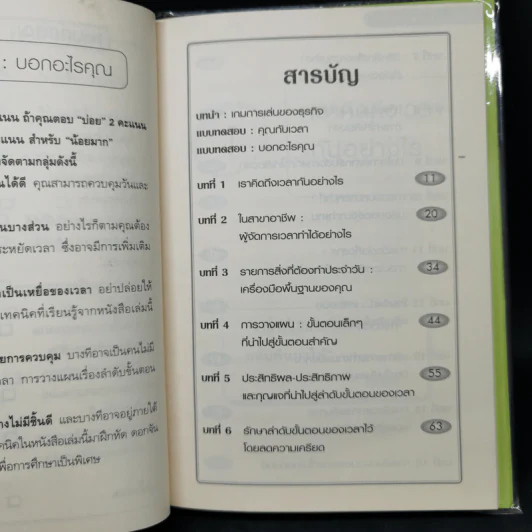 : บอกอะไรคุณ
แนน ถ้าคุณตอบ "บ่อย" 2 คะแนน
แนน สำหรับ "น้อยมาก"
จัดตามกลุ่มดังนี้
นได้ดี คุณสามารถควบคุมวันและ
นบางส่วน อย่างไรก็ตามคุณต้อง
ะหยัดเวลา ซึ่งอาจมีการเพิ่มเติม
เป็นเหยื่อของเวลา อย่าปล่อยให้
เทคนิคที่เรียนรู้จากหนังสือเล่มนี้
ยการควบคุม บางทีอาจเป็นคนไม่มี
ลา การวางแผนเรื่องลำดับขั้นตอน
างไม่มีชิ้นดี และบางทีอาจอยู่ภายใต้
คนิคในหนังสือเล่มนี้มาฝึกหัด ตอกจัน
พื่อการศึกษาเป็นพิเศษ
สารบัญ
บทนำ : เกมการเล่นของธุรกิจ
แบบทดสอบ : คุณกับเวลา
แบบทดสอบ : บอกอะไรคุณ
บทที่ 1 เราคิดถึงเวลากันอย่างไร 11
บทที่ 2 ในสาขาอาชีพ : 20
ผู้จัดการเวลาทำได้อย่างไร
บทที่ 3 รายการสิ่งที่ต้องทำประจำวัน : 34
เครื่องมือพื้นฐานของคุณ
บทที่ 4 การวางแผน : ขั้นตอนเล็กๆ 44
ที่นำไปสู่ขั้นตอนสำคัญ
บทที่ 5 ประสิทธิผล-ประสิทธิภาพ 55
และกุญแจที่นำไปสู่ลำดับขั้นตอนของเวลา
บทที่ 6 รักษาลำดับขั้นตอนของเวลาไว้ 63
โดยลดความเครียด